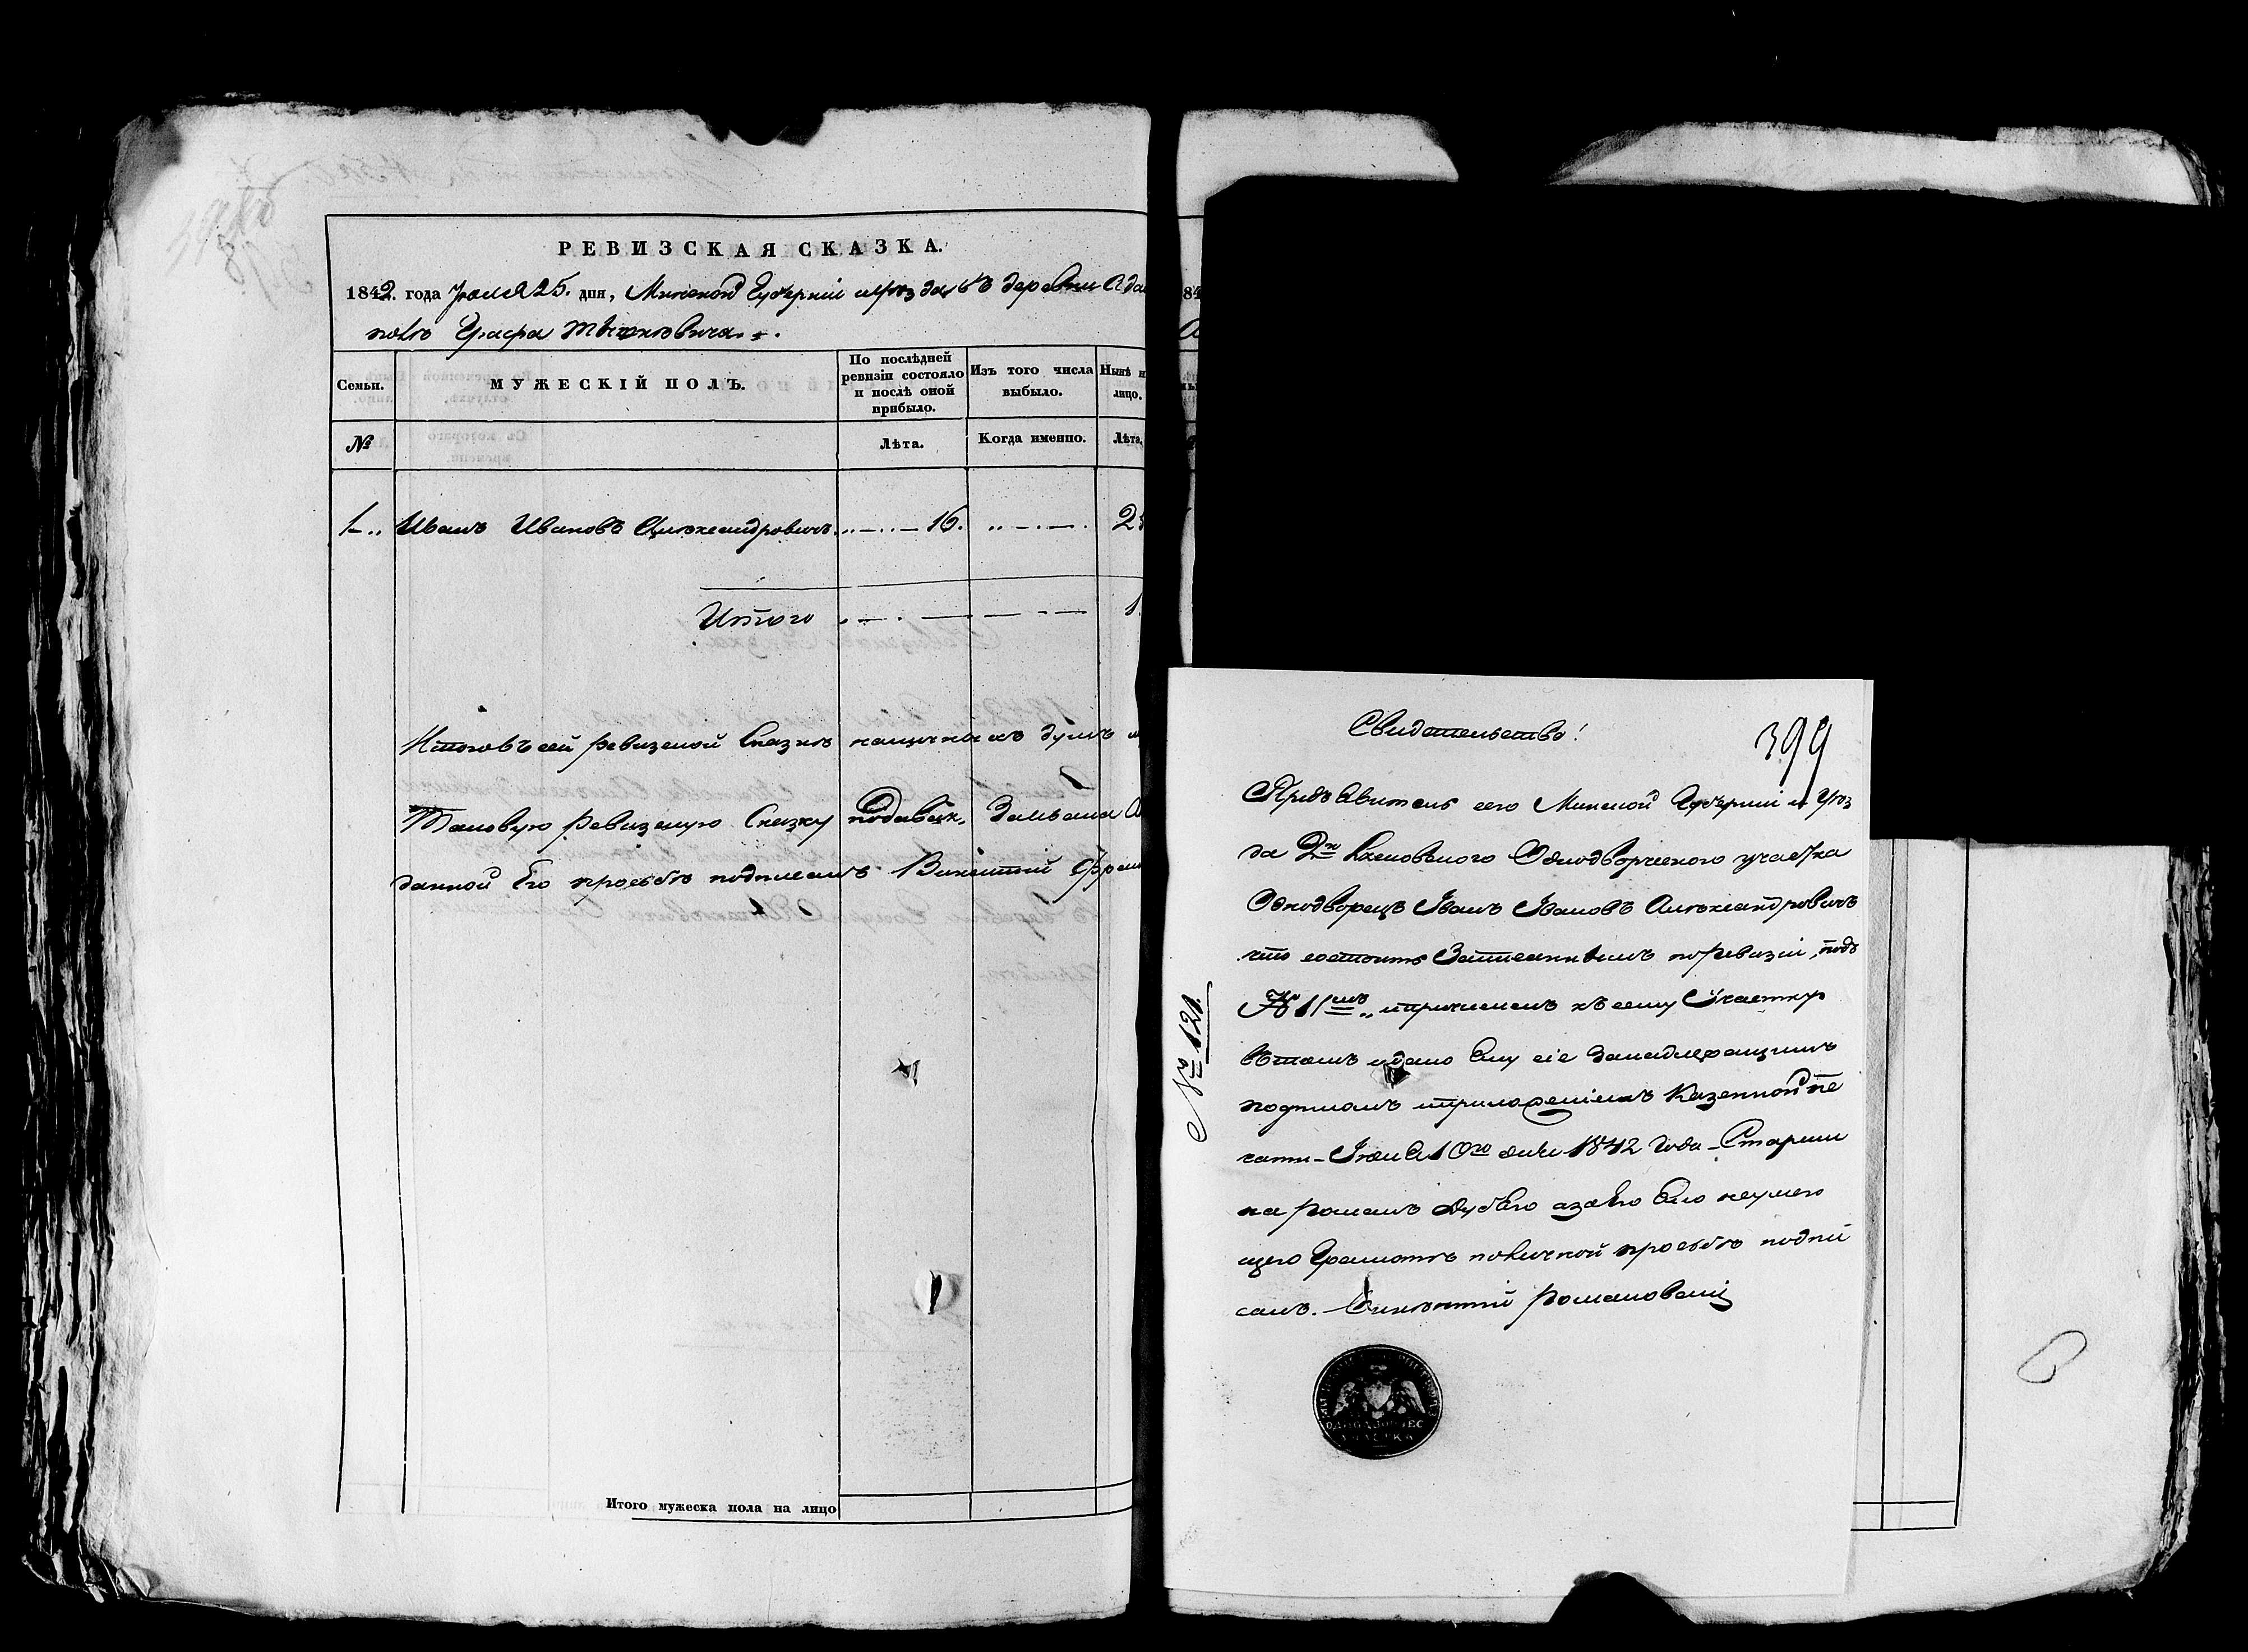 РЕВИЗСКАЯ СКАЗКА.
1842. года Іюля 25. дня, Минской Губерніи и уѣзда въ деревни
Графа Тышкевича.
Семьи.
МУЖЕСКІЙ ПОЛЪ.
По послѣдней ревизіи состояло и послѣ оной прибыло.
Изъ того числа выбыло.
Нынѣ на лицо.
№
Лѣта.
Когда именно.
Лѣта.
1. Иванъ Ивановъ Алѣксандровичъ 16. 2
Итого 1.
сей ревизской Сказкѣ душъ
Таковую ревизскую Сказку
данной Его прозьбѣ подписалъ Викентій
Итого мужеска пола на лицо
399
Свидѣтельство!
Предъявитель сего Минской Губерніи и Уѣз
да 2го Однодворческого участка
Однодворецъ Іванъ Івановъ Алѣксандровичъ
что состоитъ Записаннымъ по ревизіи, подъ
№ 11мъ и причисленъ къ сему Участку
въ томъ и дано Ему сіе за надлежащимъ
подписомъ и приложеніемъ Казенной пе
чати – Іюля 10го дня 1842 Года – Старши
на Романъ а за Его неумею
щего Грамотѣ по личной прозьбѣ подпи
салъ. – Викѣнтій Романовскій
№ 121.